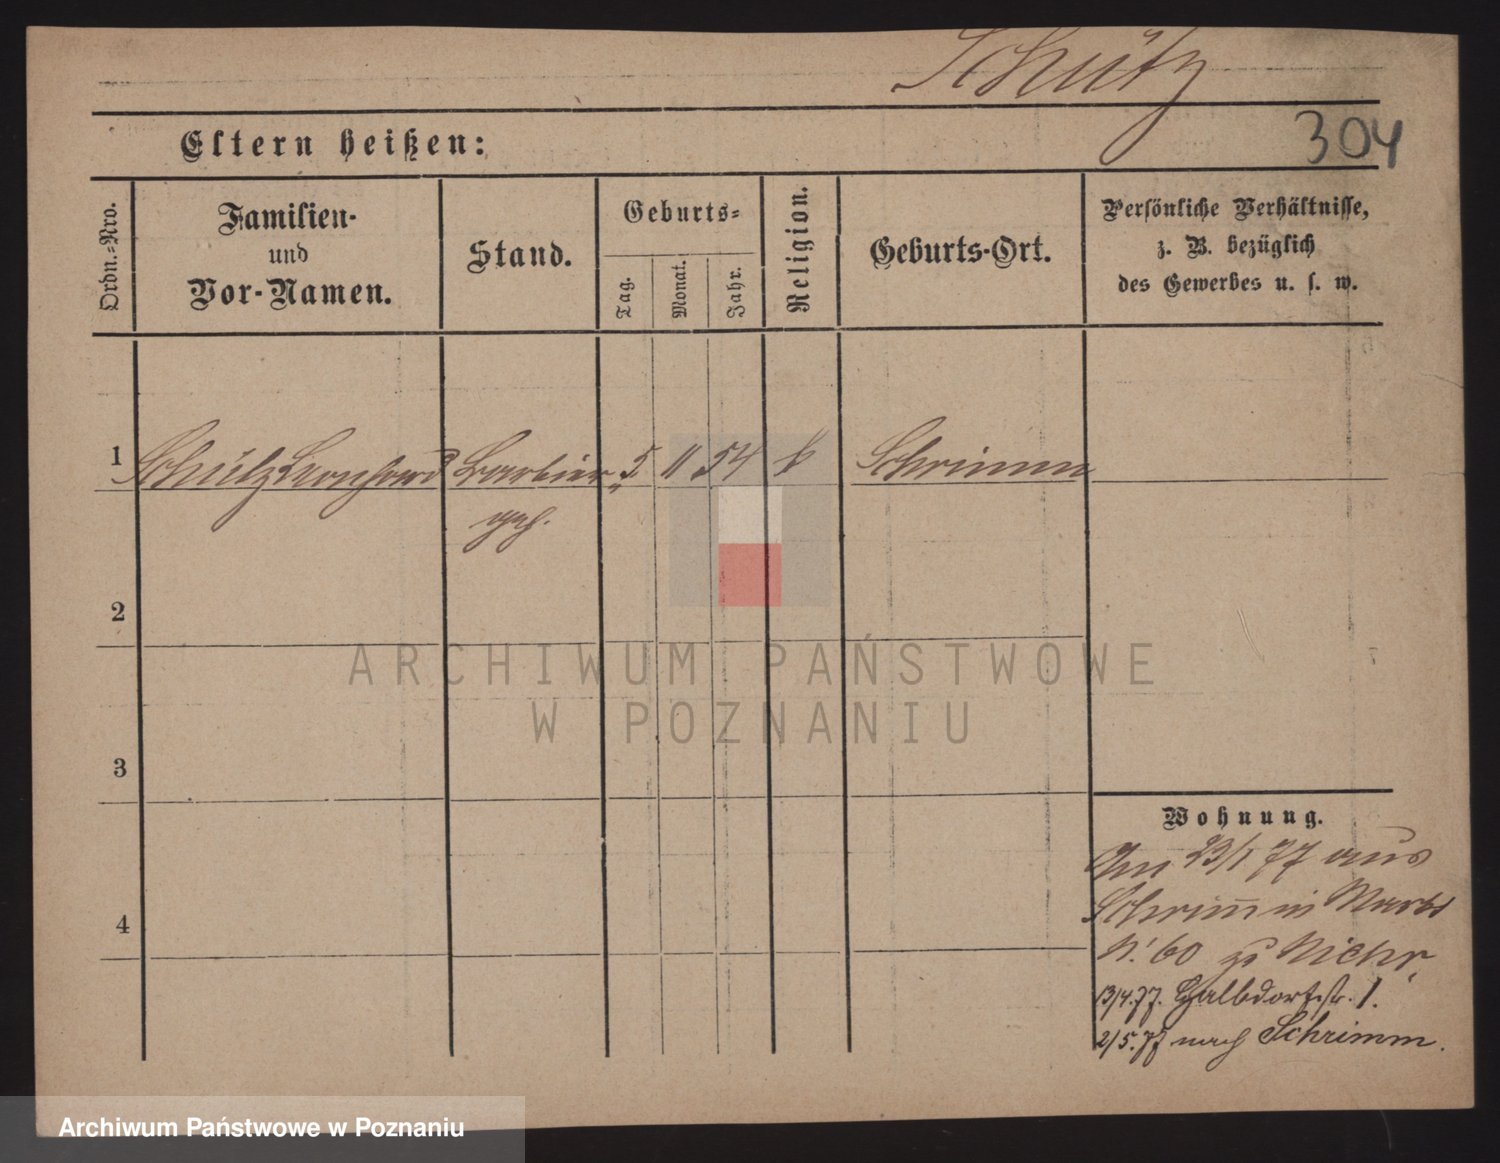 Schütz
304
Eltern heißen:
Ordn.-Nro.
Familien-
und
Vor-Namen.
Stand.
Geburts-
Tag.
Monat.
Jahr.
Religion.
Geburts-Ort.
Persönliche Verhältnisse,
z. B. bezüglich
des Gewerbes u. s. w.
1 Schütz Leonhard Barbier 5 11 54 k Schrimm
geh.
2
3
4
Wohnung.
23/1 77 aus
Schrimm in Markt
N. 60 zu
13/4.77. Halbdorfstr. 1.
2/5.77 nach Schrimm.
ARCHIWUM PAŃSTWOWE
W POZNANIU
Archiwum Państwowe w Poznaniu